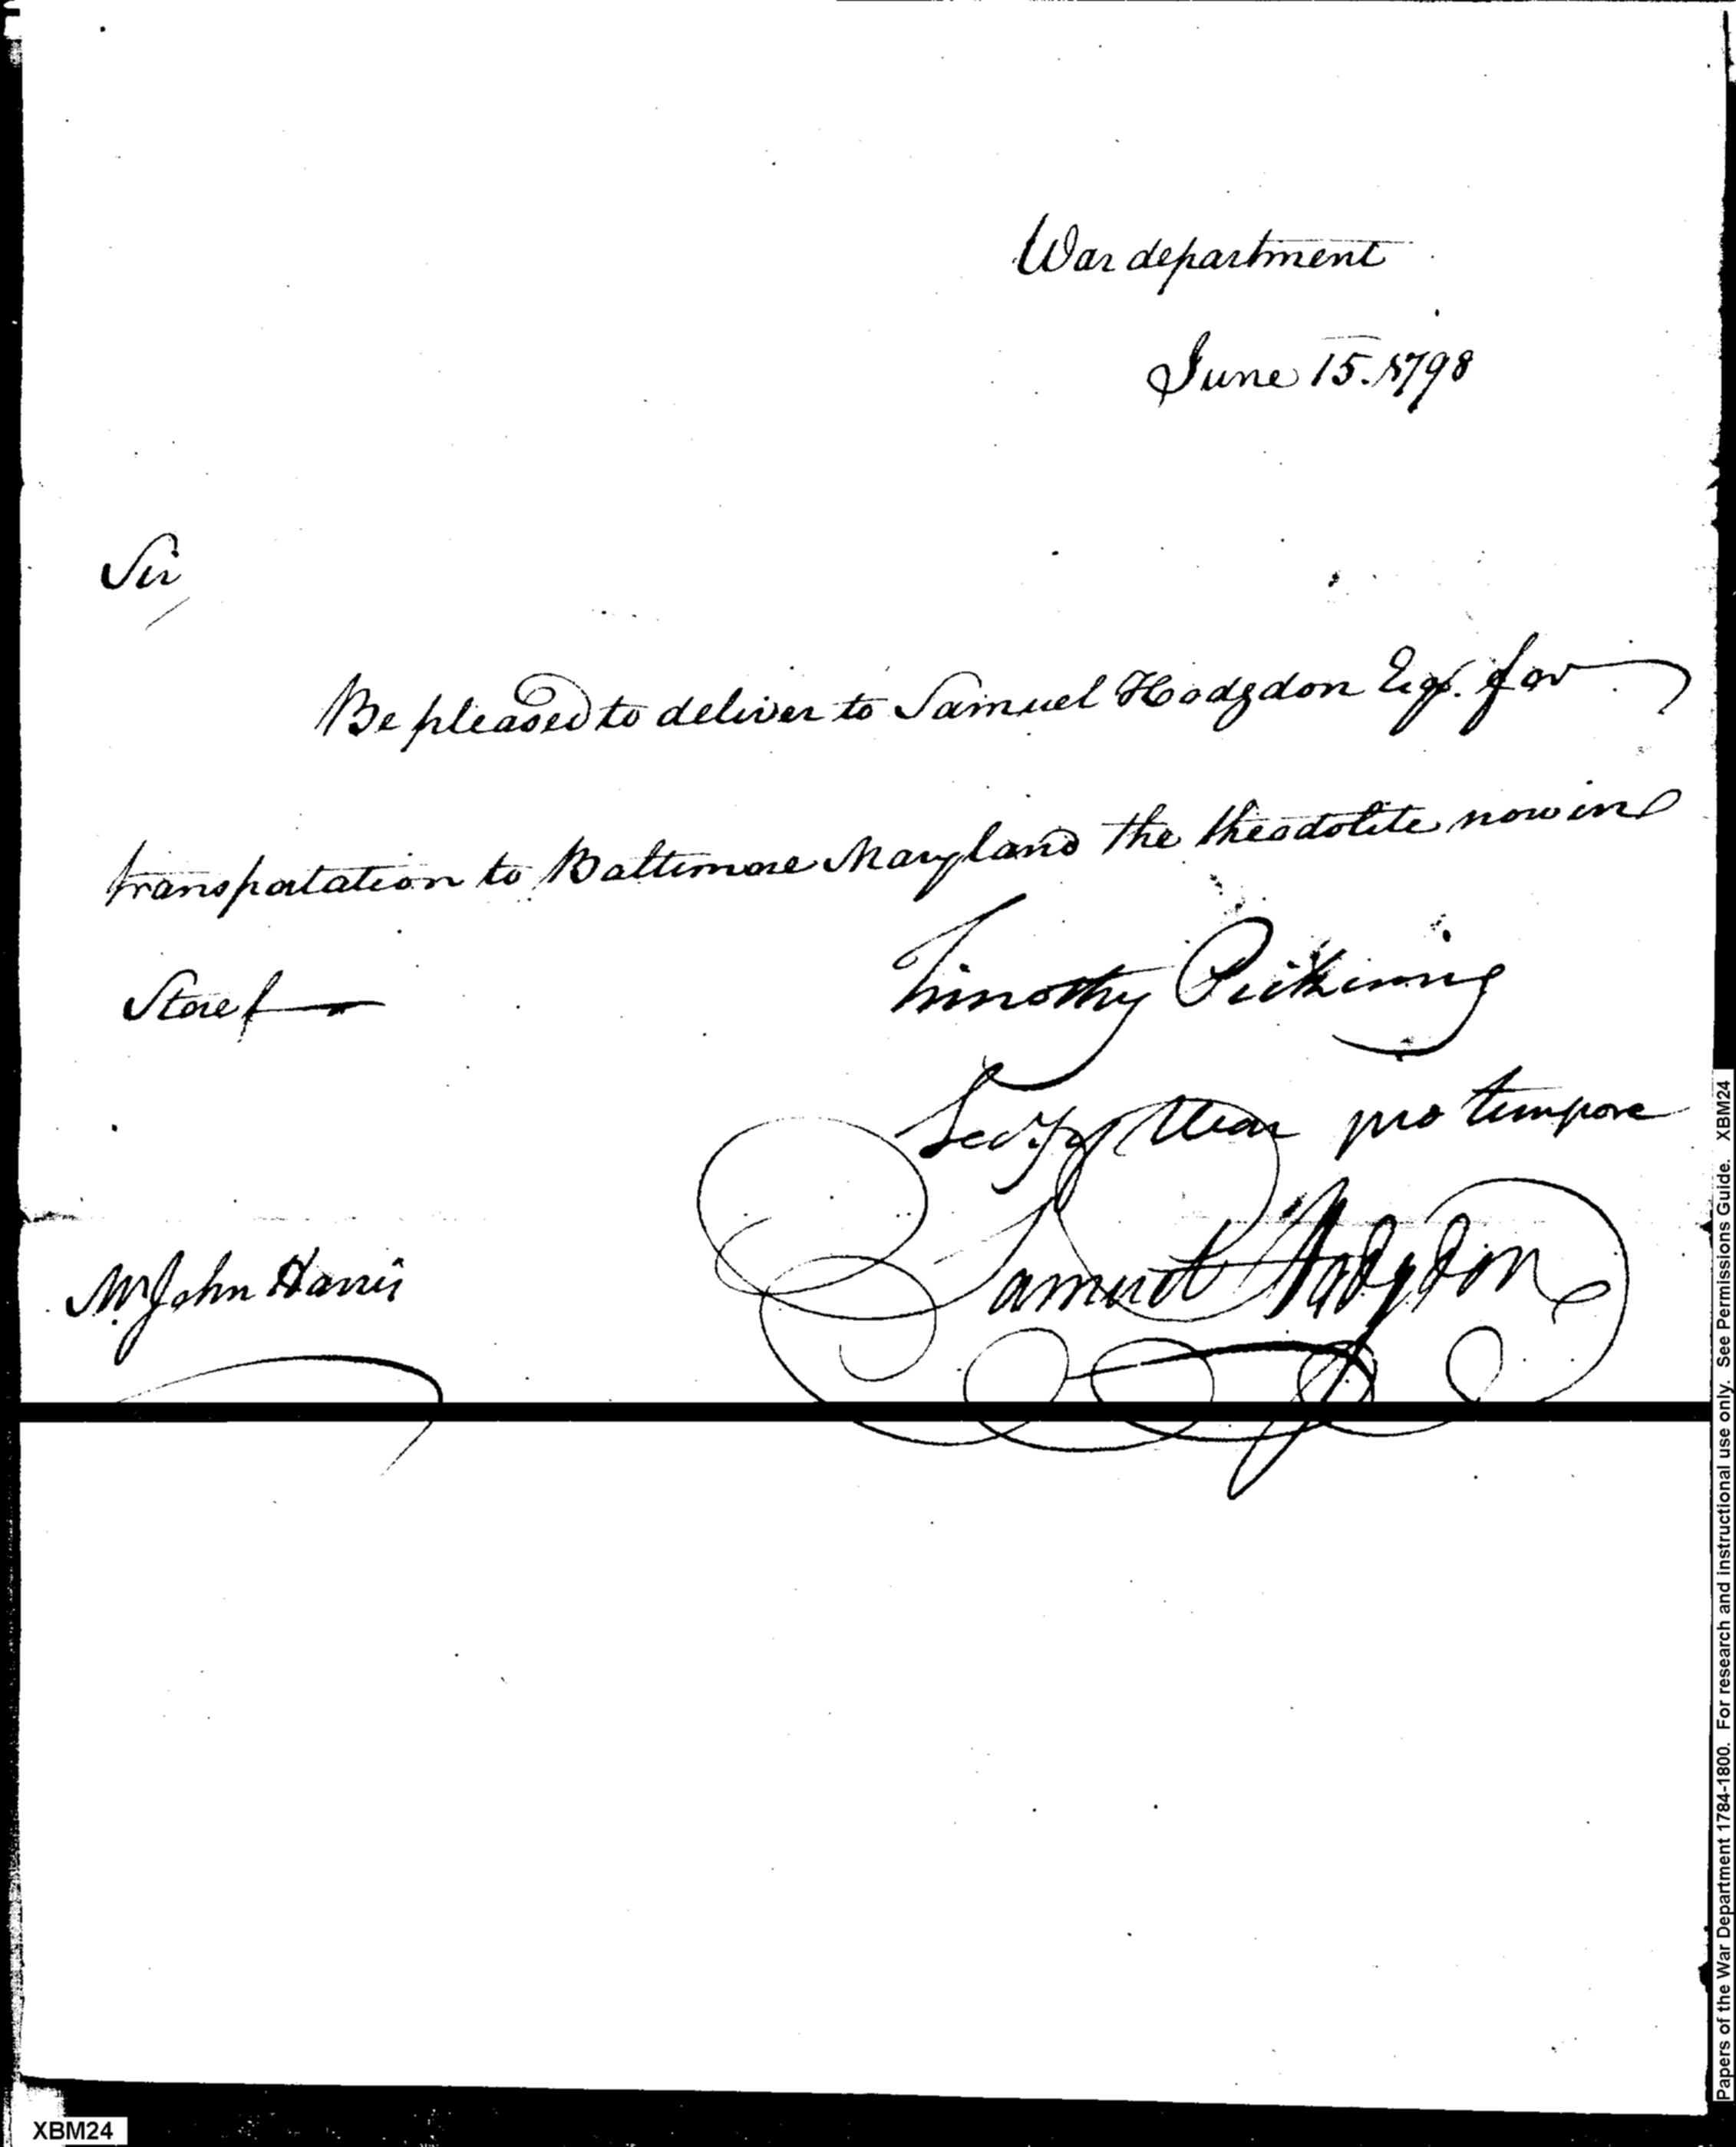 War department
June 15. 1798
Sir
Be pleased to deliver to Samuel Hodgdon Esqr. for
transportation to Baltimore Maryland the theodolite now in
Store
Timothy Pickering
Secy of War pro tempore
Samuel Hodgdon
Mr John Harris
Papers of the War Department 1784-1800. For research and instructional use only. See Permissions Guide. XBM24
XBM24